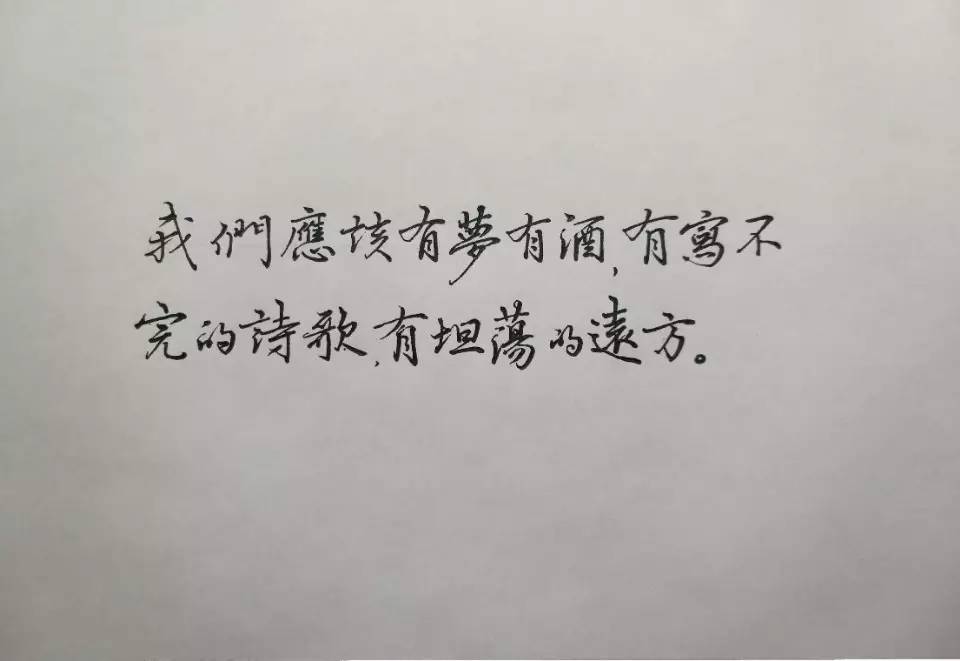 我們應該有夢有酒,有寫不
完的詩歌,有坦蕩的遠方。